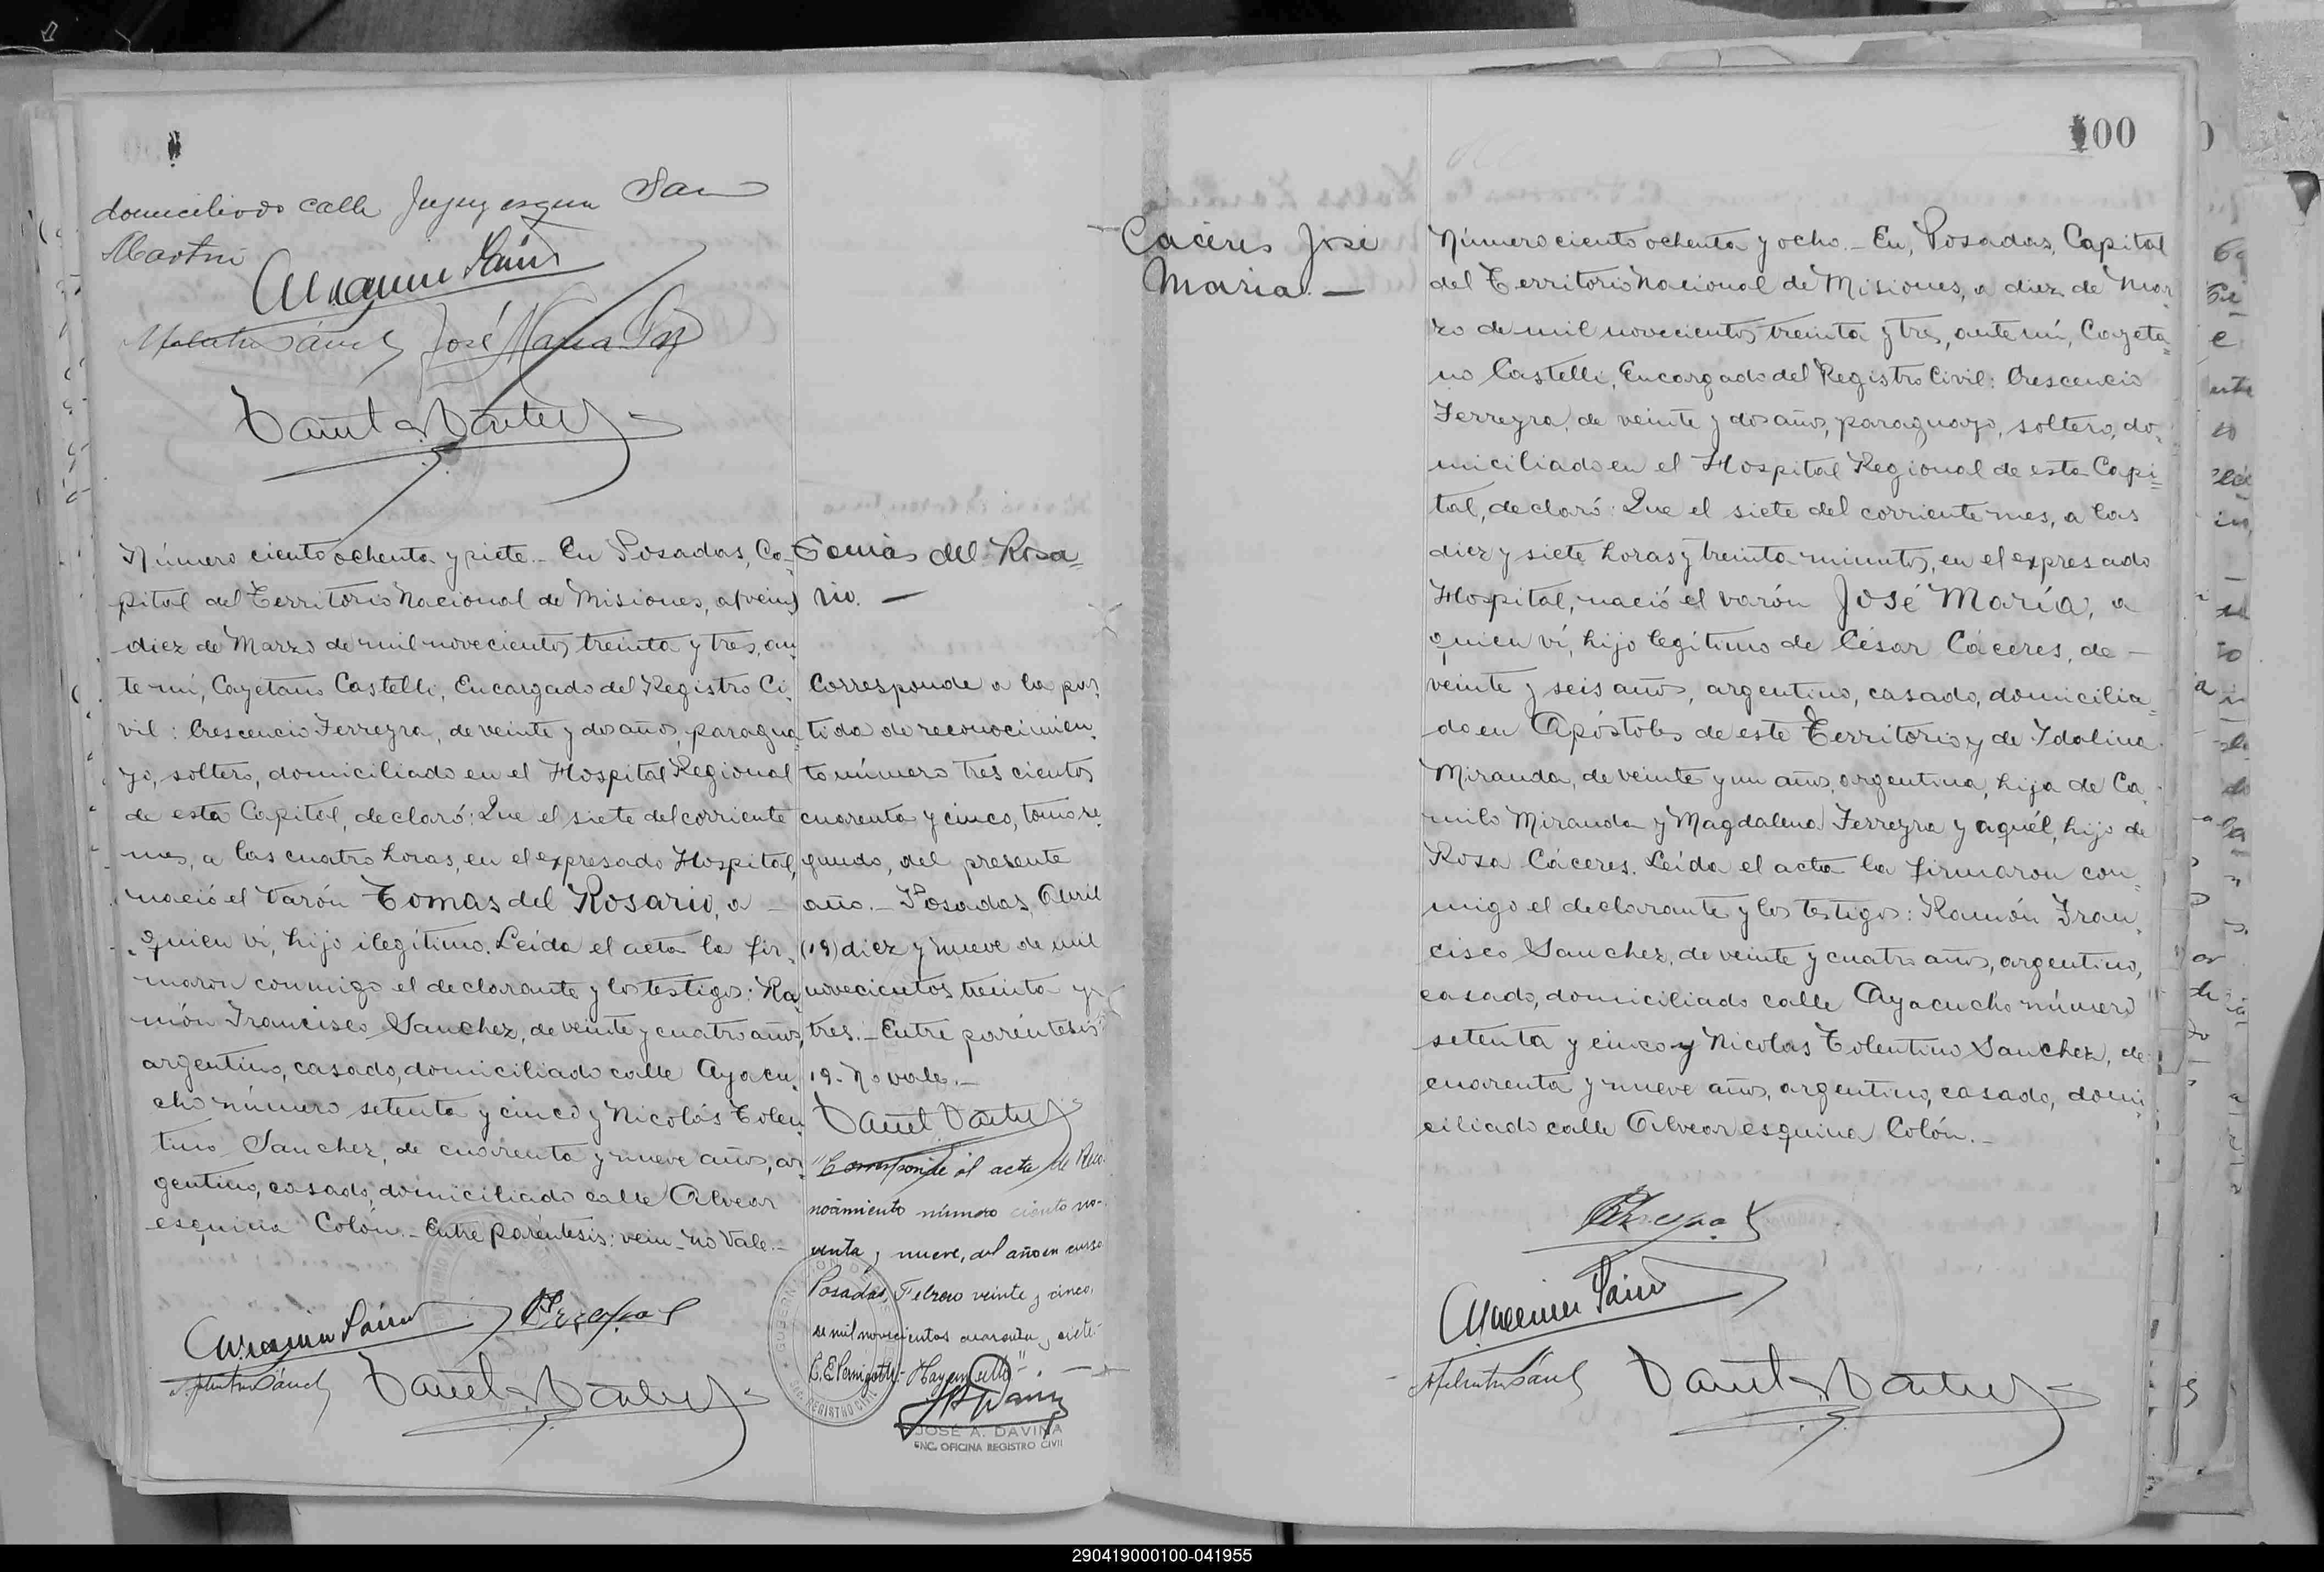 domiciliado calle Jujuy esquina San
Martín
Número ciento ochenta y siete.- En Posadas, Ca-
pital del Territorio Nacional de Misiones, a (vein)
diez de Marzo de mil novecientos treinta y tres, an-
te mí, Cayetano Castelli, Encargado del Registro Ci-
vil: Crescencio Ferreyra, de veinte y dos años, paragua-
yo, soltero, domiciliado en el Hospital Regional
de esta Capital, declaró: Que el siete del corriente
mes, a las cuatro horas, en el expresado Hospital,
nació el varón Tomas del Rosario, a
quien ví, hijo ilegítimo. Leída el acta la fir-
maron conmigo el declarante y los testigos: Ra-
món Francisco Sanchez, de veinte y cuatro años,
argentino, casado, domiciliado calle Ayacu-
cho número setenta y cinco y Nicolás Tolen-
tino Sanchez, de cuarenta y nueve años, ar-
gentino, casado, domiciliado calle Alvear
esquina Colón.- Entre paréntesis: vein- no Vale.-
Tomás del Rosa=
rio. —
Corresponde a la par-
tida de reconocimien-
to número tres cientos
cuarenta y cinco, tomo se-
gundo, del presente
año.- Posadas, Abril
(19) diez y nueve de mil
novecientos treinta y
tres.- Entre paréntesis:
19- No vale.-
"Corresponde al acta de Reco-
nocimiento número ciento no-
venta y nueve, del año en curso
Posadas, Febrero veinte y cinco,
de mil novecientos cuarenta y siete-
Hay un sello".-
JOSÉ A. DAVIÑA
ENC. OFICINA REGISTRO CIVIL
100
Cáceres José
María. —
Número ciento ochenta y ocho.- En, Posadas, Capital
del Territorio Nacional de Misiones, a diez de Mar-
zo de mil novecientos treinta y tres, ante mí, Cayeta=
no Castelli, Encargado del Registro Civil: Crescencio
Ferreyra, de veinte y dos años, paraguayo, soltero, do-
miciliado en el Hospital Regional de esta Capi=
tal, declaró: Que el siete del corriente mes, a las
diez y siete horas y treinta minutos, en el expresado
Hospital, nació el varón José María, a
quien ví, hijo legítimo de César Cáceres, de -
veinte y seis años, argentino, casado, domicilia=
do en Apóstoles de este Territorio y de Idalina
Miranda, de veinte y un años, argentina, hija de Ca-
milo Miranda y Magdalena Ferreyra y aquél, hijo de
Rosa Cáceres. Leída el acta la firmaron con-
migo el declarante y los testigos: Ramón Fran-
cisco Sanchez, de veinte y cuatro años, argentino,
casado, domiciliado calle Ayacucho número
setenta y cinco y Nicolas Tolentino Sanchez, de
cuarenta y nueve años, argentino, casado, domi-
ciliado calle Alvear esquina Colón.-
290419000100-041955